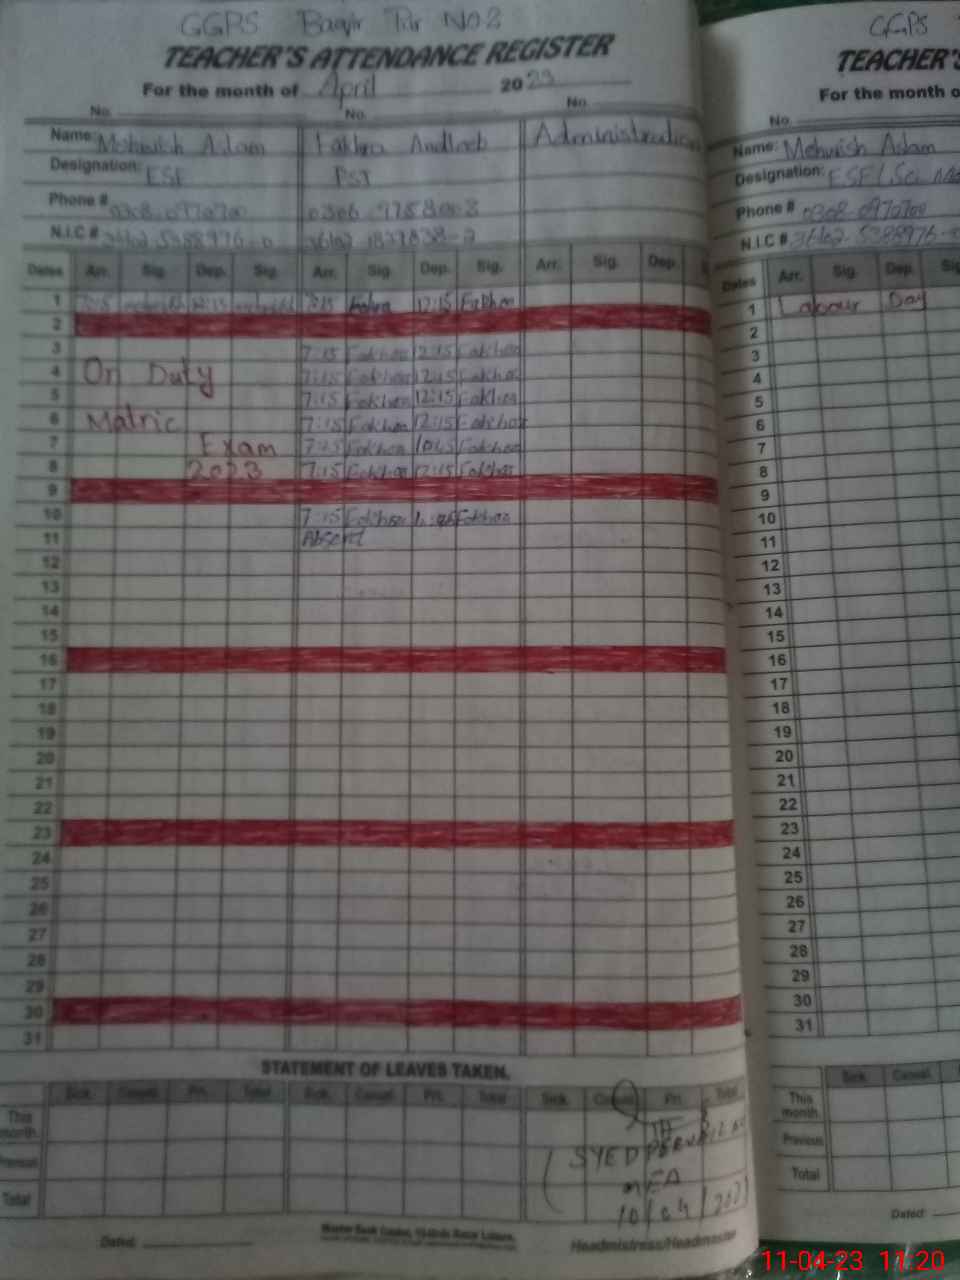 GGPS Baqir Pur No 2
TEACHER'S ATTENDANCE REGISTER
For the month of April 2023
No. No. No.
Name: Mehwish Aslam Fakhra Andleeb Administration
Designation: ESE PST
Phone # 0308-0970700 0306
N.I.C # 36102-5388976-0 36102
Dates Arr. Sig. Dep. Sig. Arr. Sig. Dep. Sig. Arr. Sig. Dep. S
1 7:15 12:15 7:15 Fakhra 12:15 Fakhra
2
3 7:15 Fakhra 12:15 Fakhra
4 On Duty 7:15 Fakhra 12:15 Fakhra
5 7:15 Fakhra 12:15 Fakhra
6 Matric 7:15 Fakhra 12:15 Fakhra
7 Exam Fakhra Fakhra
8 2023 7:15 Fakhra 12:15 Fakhra
9
10 7:15 Fakhra Fakhra
11 Absent
12
13
14
15
16
17
18
19
20
21
22
23
24
25
26
27
28
29
30
31
STATEMENT OF LEAVES TAKEN.
Sick. Casual. Pri. Total Sick. Casual. Pri. Total Sick. Casual. Pri. Total
This month.
Previous
Total
SYED
MEA
10/04/2023
Dated:
Headmistress/Headmaster
GGPS
TEACHER'S
For the month o
No.
Name: Mehwish Aslam
Designation: ESE (Sci
Phone # 0308-0970700
N.I.C # 36102-5388976-0
Dates Arr. Sig. Dep. Sig
1 Labour Day
2
3
4
5
6
7
8
9
10
11
12
13
14
15
16
17
18
19
20
21
22
23
24
25
26
27
28
29
30
31
Sick. Casual.
This month.
Previous
Total
Dated:
11-04-23 11:20